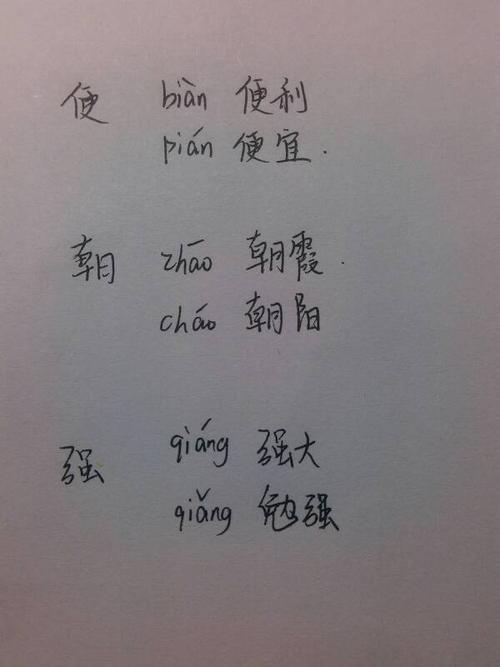 便 biàn 便利
pián 便宜.
朝 zhāo 朝霞.
cháo 朝阳
强 qiáng 强大
qiǎng 勉强